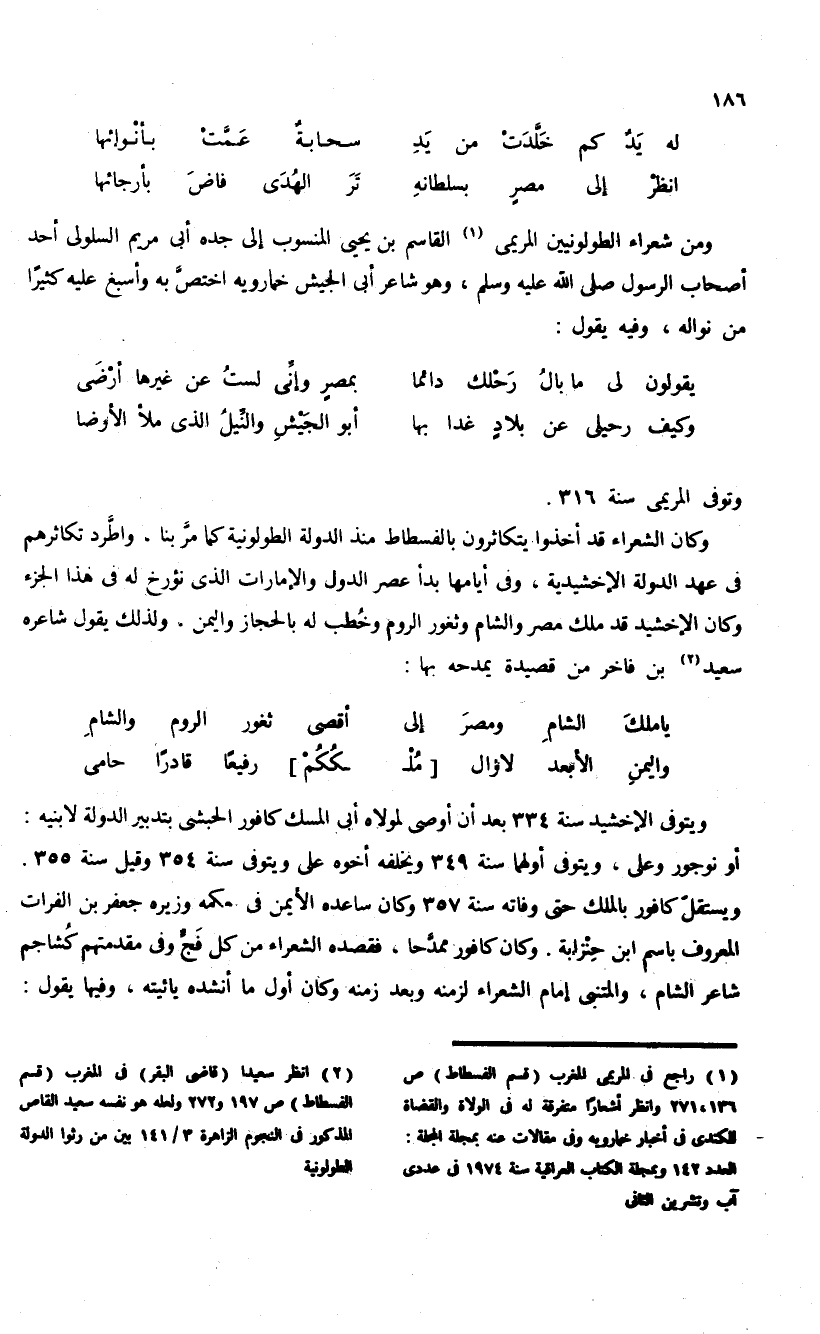 ١٨٦
له يَدٌ كم خَلَّدَتْ من يَدِ سحابةٌ عَمَّتْ بأنْوائها
انظرْ إلى مصرٍ بسلطانهِ تَرَ الهُدَى فاضَ بأرجائها
ومن شعراء الطولونيين المريمى (١) القاسم بن يحيى المنسوب إلى جده أبى مريم السلولى أحد
أصحاب الرسول صلى الله عليه وسلم ، وهو شاعر أبى الجيش خمارويه اختصَّ به وأسبغ عليه كثيرًا
من نواله ، وفيه يقول :
يقولون لى ما بالُ رَحْلك دائما بمصرٍ وإنِّى لستُ عن غيرها أرْضَى
وكيف رحيلى عن بلادٍ غدا بها أبو الجَيْشِ والنِّيلُ الذى ملأ الأرضا
وتوفى المريمى سنة ٣١٦ .
وكان الشعراء قد أخذوا يتكاثرون بالفسطاط منذ الدولة الطولونية كما مرَّ بنا . واطَّرد تكاثرهم
فى عهد الدولة الإخشيدية ، وفى أيامها بدأ عصر الدول والإمارات الذى نؤرخ له فى هذا الجزء
وكان الإخشيد قد ملك مصر والشام وثغور الروم وخُطب له بالحجاز واليمن . ولذلك يقول شاعره
سعيد(٢) بن فاخر من قصيدة يمدحه بها :
ياملكَ الشامِ ومصرَ إلى أقصى ثغور الروم والشامِ
واليمنِ الأبعد لازال [ مُلْـ ـكُكُمْ ] رفيعًا قادرًا حامى
ويتوفى الإخشيد سنة ٣٣٤ بعد أن أوصى لمولاه أبى المسك كافور الحبشى بتدبير الدولة لابنيه :
أو نوجور وعلى ، ويتوفى أولهما سنة ٣٤٩ ويخلفه أخوه على ويتوفى سنة ٣٥٤ وقيل سنة ٣٥٥ .
ويستقلّ كافور بالملك حتى وفاته سنة ٣٥٧ وكان ساعده الأيمن فى حكمه وزيره جعفر بن الفرات
المعروف باسم ابن حِنْزابة . وكان كافور ممدَّحا ، فقصده الشعراء من كل فَجٍّ وفى مقدمتهم كُشاجم
شاعر الشام ، والمتنبى إمام الشعراء لزمنه وبعد زمنه وكان أول ما أنشده يائيته ، وفيها يقول :
(١) راجع فى المريمى المغرب (قسم الفسطاط) ص
١٣٦، ٢٧١ وانظر أشعارًا متفرقة له فى الولاة والقضاة
للكندى فى أخبار خمارويه وفى مقالات عنه بمجلة المجلة :
العدد ١٤٢ وبمجلة الكتاب العراقية سنة ١٩٧٤ فى عددى
آب وتشرين الثانى
(٢) انظر سعيدا (قاضى البقر) فى المغرب (قسم
الفسطاط) ص ١٩٧ و٢٧٢ ولعله هو نفسه سعيد القاص
المذكور فى النجوم الزاهرة ١٤١/٣ بين من رثوا الدولة
الطولونية